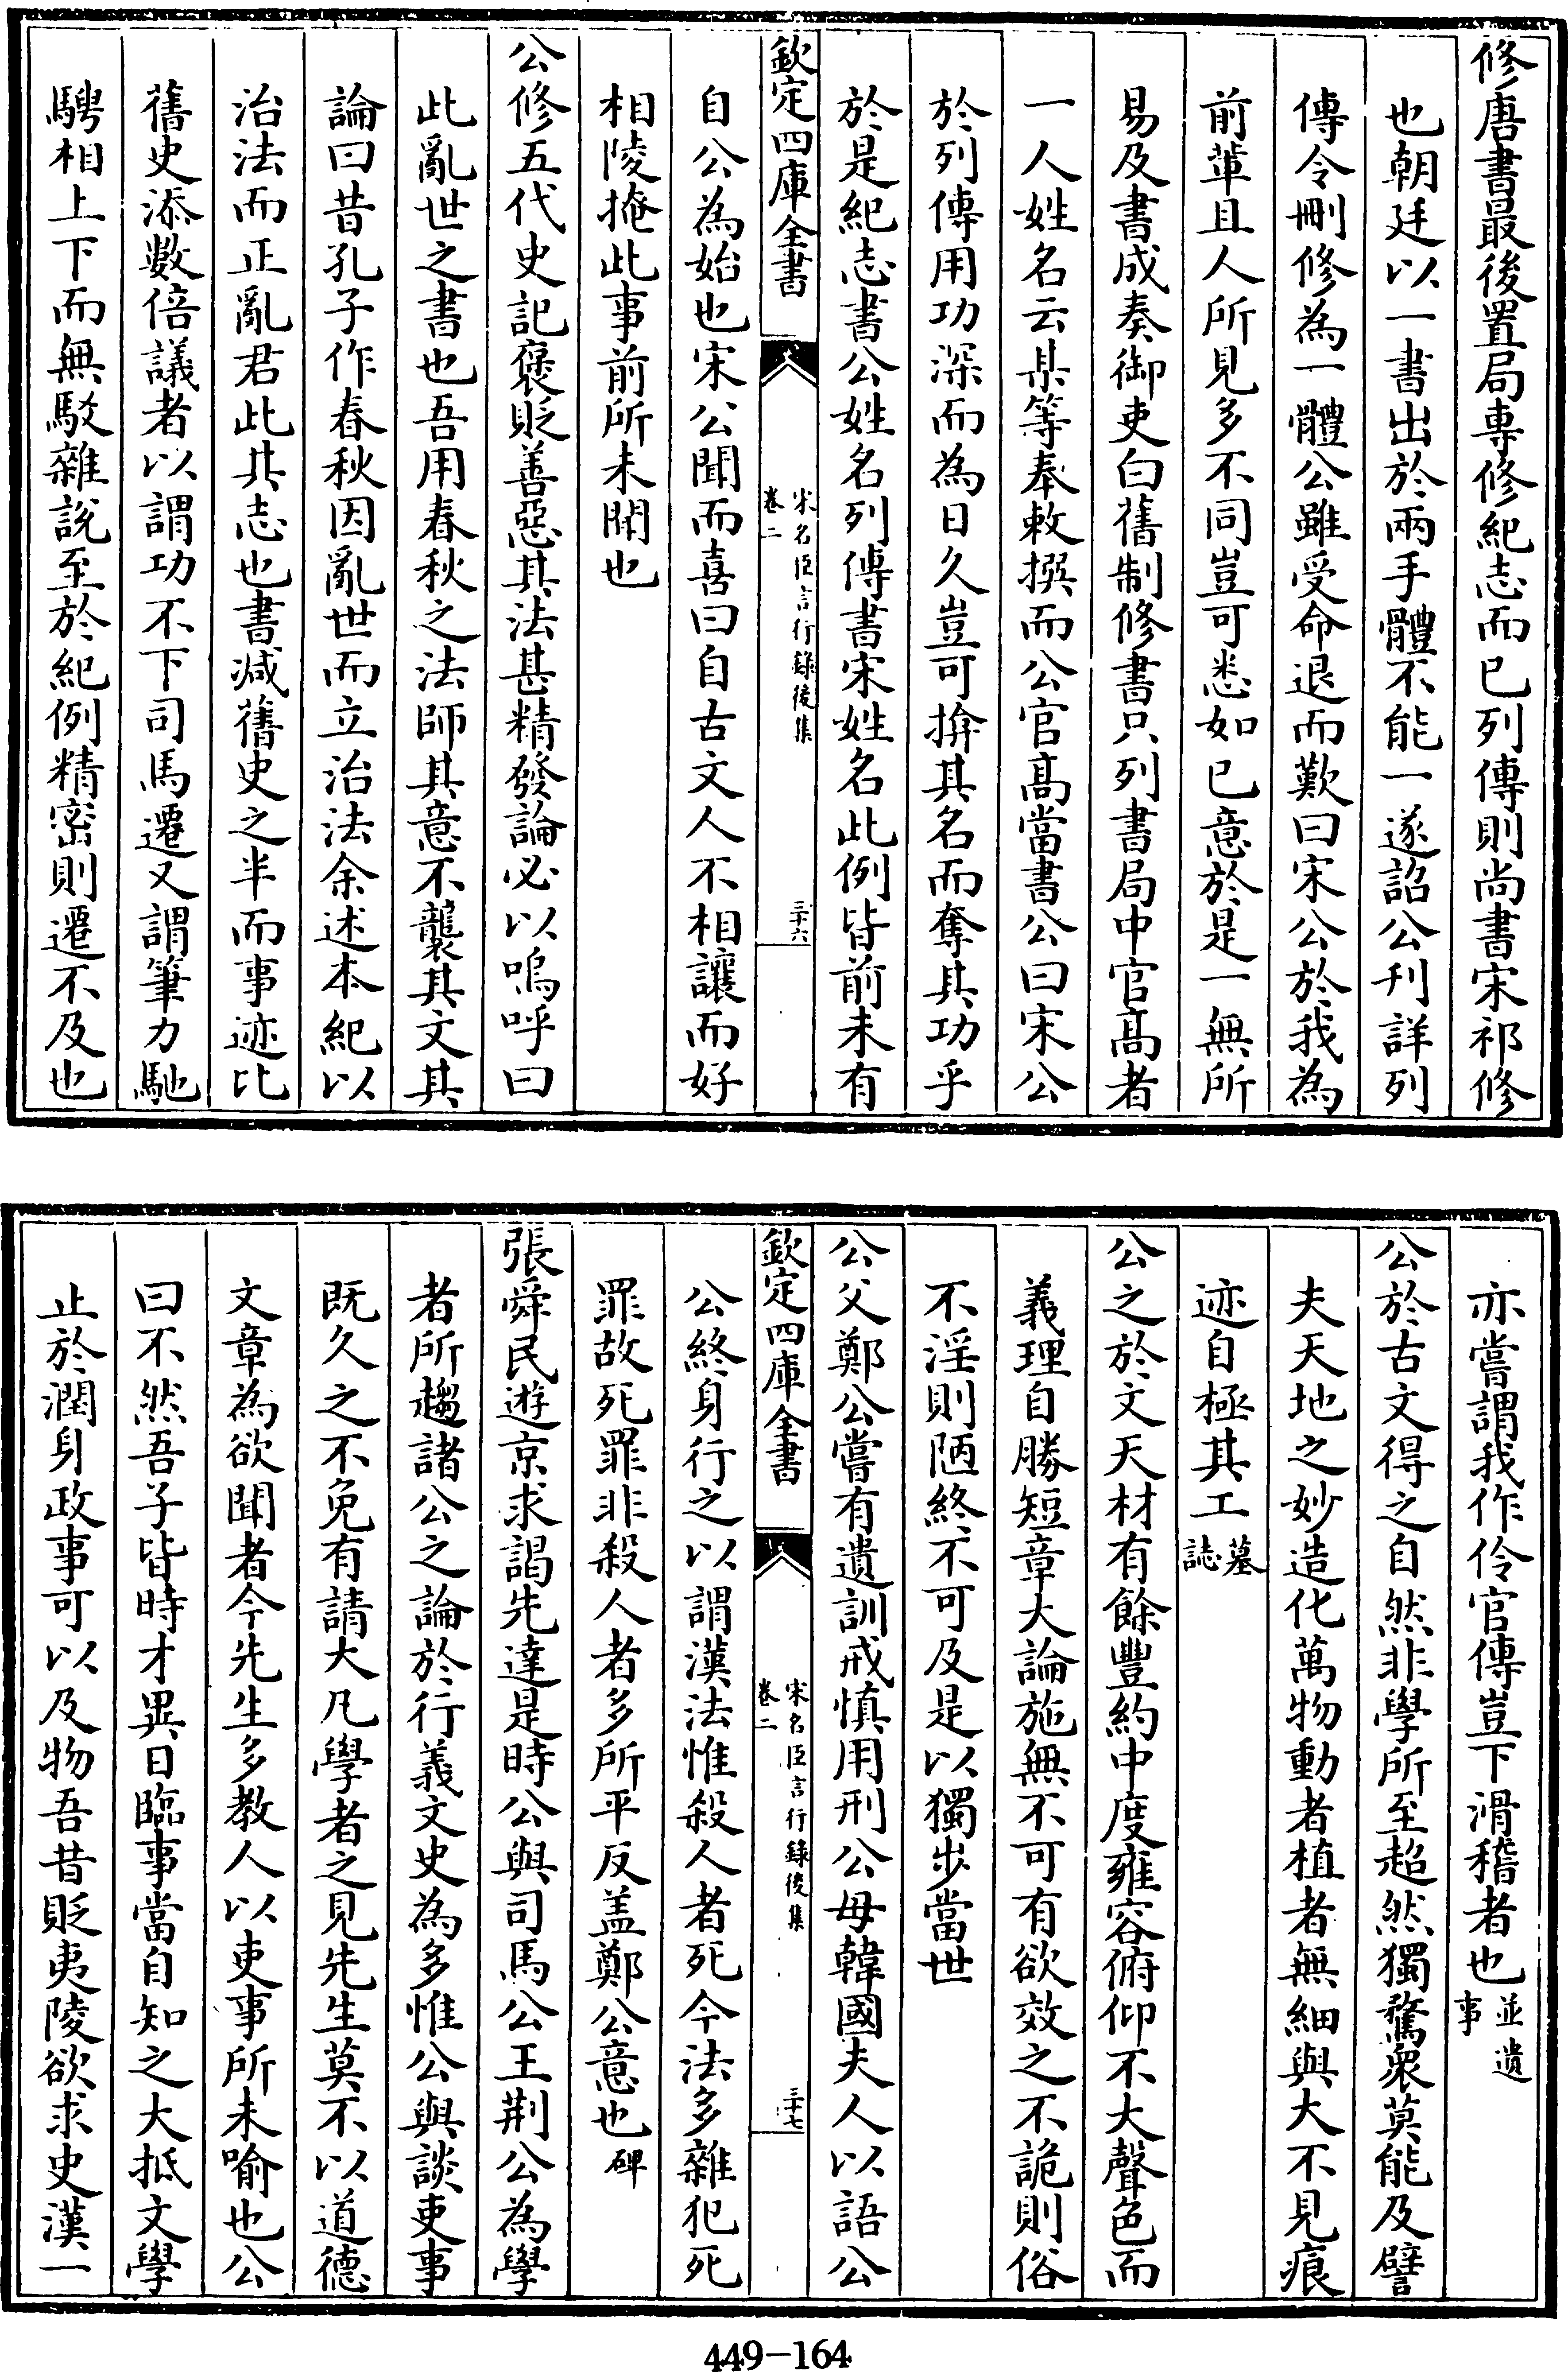 修唐書最後置局專修紀志而已列傳則尚書宋祁修
也朝廷以一書出於兩手體不能一遂詔公刋詳列
傳令刪修為一體公雖受命退而歎曰宋公於我為
前輩且人所見多不同豈可悉如已意於是一無所
易及書成奏御吏白舊制修書只列書局中官髙者
一人姓名云某等奉敕撰而公官髙當書公曰宋公
於列傳用功深而為日久豈可揜其名而奪其功乎
於是紀志書公姓名列傳書宋姓名此例皆前未有
欽定四庫全書
宋名臣言行錄後集
卷二
三十六
自公為始也宋公聞而喜曰自古文人不相讓而好
相陵掩此事前所未聞也
公修五代史記褒貶善惡其法甚精發論必以嗚呼曰
此亂世之書也吾用春秋之法師其意不襲其文其
論曰昔孔子作春秋因亂世而立治法余述本紀以
治法而正亂君此其志也書減舊史之半而事迹比
舊史添數倍議者以謂功不下司馬遷又謂筆力馳
騁相上下而無駁雜說至於紀例精密則遷不及也
亦嘗謂我作伶官傳豈下滑稽者也並遺
事
公於古文得之自然非學所至超然獨騖衆莫能及譬
夫天地之妙造化萬物動者植者無細與大不見痕
迹自極其工墓
誌
公之於文天材有餘豐約中度雍容俯仰不大聲色而
義理自勝短章大論施無不可有欲效之不詭則俗
不淫則陋終不可及是以獨步當世
公父鄭公嘗有遺訓戒慎用刑公母韓國夫人以語公
欽定四庫全書
宋名臣言行錄後集
卷二
三十七
公終身行之以謂漢法惟殺人者死今法多雜犯死
罪故死罪非殺人者多所平反盖鄭公意也碑
張舜民遊京求謁先達是時公與司馬公王荆公為學
者所趨諸公之論於行義文史為多惟公與談吏事
既久之不免有請大凡學者之見先生莫不以道德
文章為欲聞者今先生多教人以吏事所未喻也公
曰不然吾子皆時才異日臨事當自知之大抵文學
止於潤身政事可以及物吾昔貶夷陵欲求史漢一
449-164